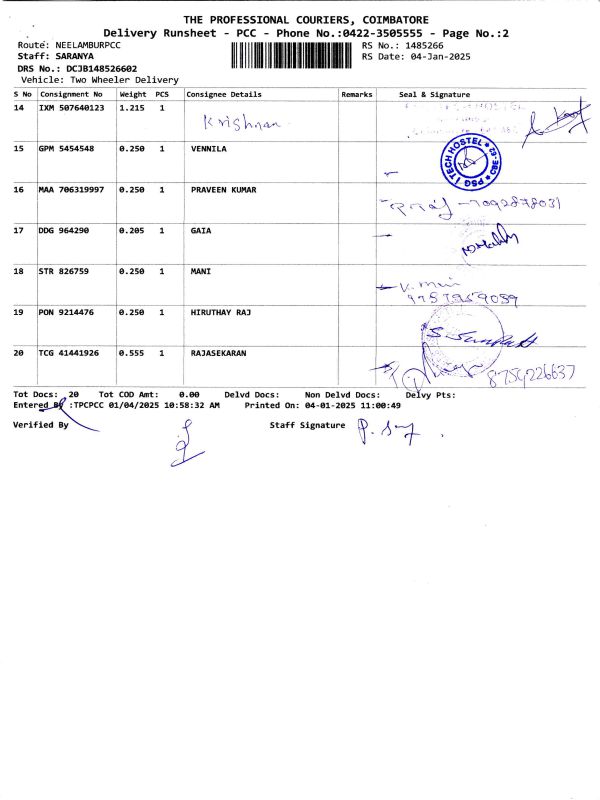 THE PROFESSIONAL COURIERS, COIMBATORE
Delivery Runsheet - PCC - Phone No.:0422-3505555 - Page No.:2
Route: NEELAMBURPCC RS No.: 1485266
Staff: SARANYA RS Date: 04-Jan-2025
DRS No.: DCJB148526602
Vehicle: Two Wheeler Delivery
S No Consignment No Weight PCS Consignee Details Remarks Seal & Signature
14 IXM 507640123 1.215 1 Krishnan
15 GPM 5454548 0.250 1 VENNILA PSG iTECH HOSTEL * CBE-62 *
16 MAA 706319997 0.250 1 PRAVEEN KUMAR
17 DDG 964290 0.205 1 GAIA
18 STR 826759 0.250 1 MANI
19 PON 9214476 0.250 1 HIRUTHAY RAJ
20 TCG 41441926 0.555 1 RAJASEKARAN 8754226637
Tot Docs: 20 Tot COD Amt: 0.00 Delvd Docs: Non Delvd Docs: Delvy Pts:
Entered By :TPCPCC 01/04/2025 10:58:32 AM Printed On: 04-01-2025 11:00:49
Verified By Staff Signature